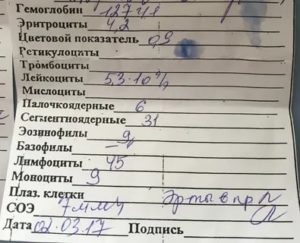 Гемоглобин 127 г/л
Эритроциты 4,2
Цветовой показатель 0,9
Ретикулоциты
Тромбоциты
Лейкоциты 5,3·10⁹/л
Мислоциты
Палочкоядерные 6
Сегментоядерные 31
Эозинофилы 9
Базофилы –
Лимфоциты 45
Моноциты 9
Плаз. клетки
СОЭ 7 мм/ч
Дата 02.03.17 Подпись